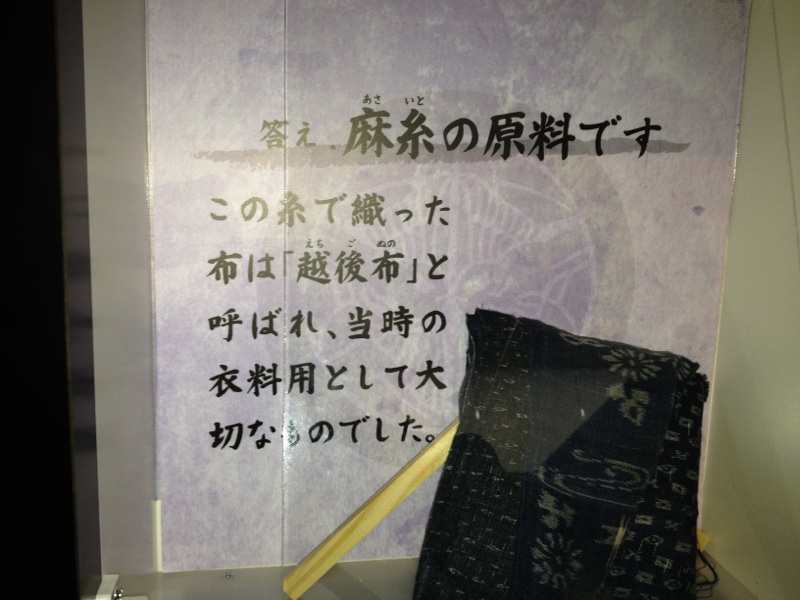 答え．麻糸の原料です
この糸で織った
布は「越後布」と
呼ばれ、当時の
衣料用として大
切なものでした。